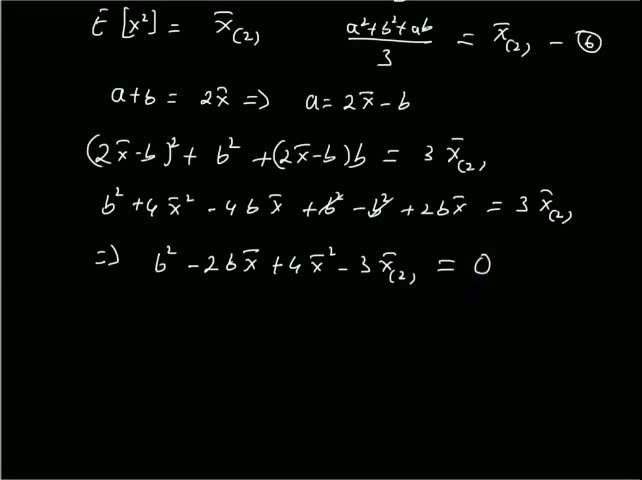 E[x²] = x̄₍₂₎ (a²+b²+ab)/3 = x̄₍₂₎ - ⑥
a+b = 2x̄ => a = 2x̄ - b
(2x̄-b)² + b² + (2x̄-b)b = 3 x̄₍₂₎
b² + 4x̄² - 4bx̄ + b² - b² + 2bx̄ = 3 x̄₍₂₎
=> b² - 2bx̄ + 4x̄² - 3x̄₍₂₎ = 0